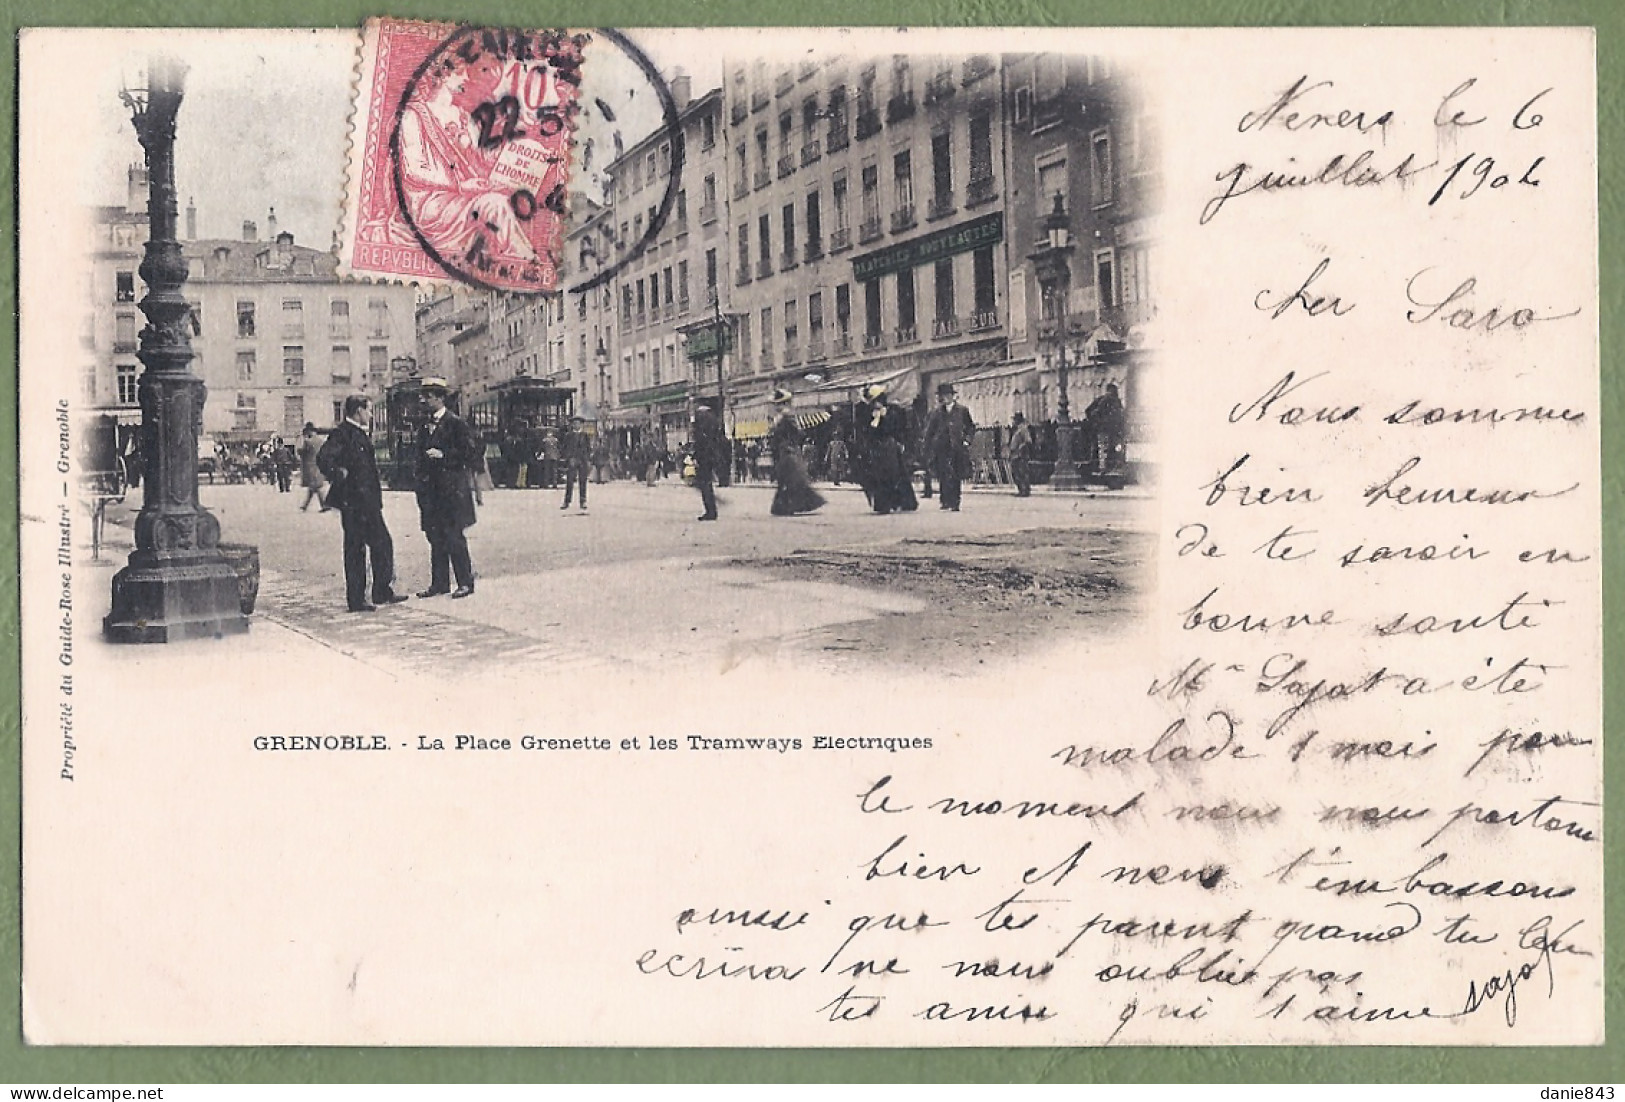 10
DROITS
DE
L'HOMME
REPVBLIQUE
NEVERS
22
04
NIEVRE
DRAPERIES NOUVEAUTES
TAILLEUR
Propriété du Guide-Rose Illustré — Grenoble
GRENOBLE. - La Place Grenette et les Tramways Electriques
Nevers le 6
juillet 1904
Cher Sara
Nous somme
bien heureux
de te savoir en
bonne santé
Me Sajat a été
malade 1 mois pour
le moment nous nous portons
bien et nous t'embassons
ainssi que tes parent quand tu leur
ecrira ne nous oublie pas
tes amis qui t'aime Sajat
danie843